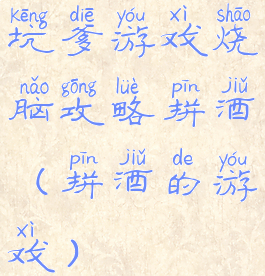 kēng diē yóu xì shāo
坑爹游戏烧
nǎo gōng lüè pīn jiǔ
脑攻略拼酒
pīn jiǔ de yóu
（拼酒的游
xì
戏）